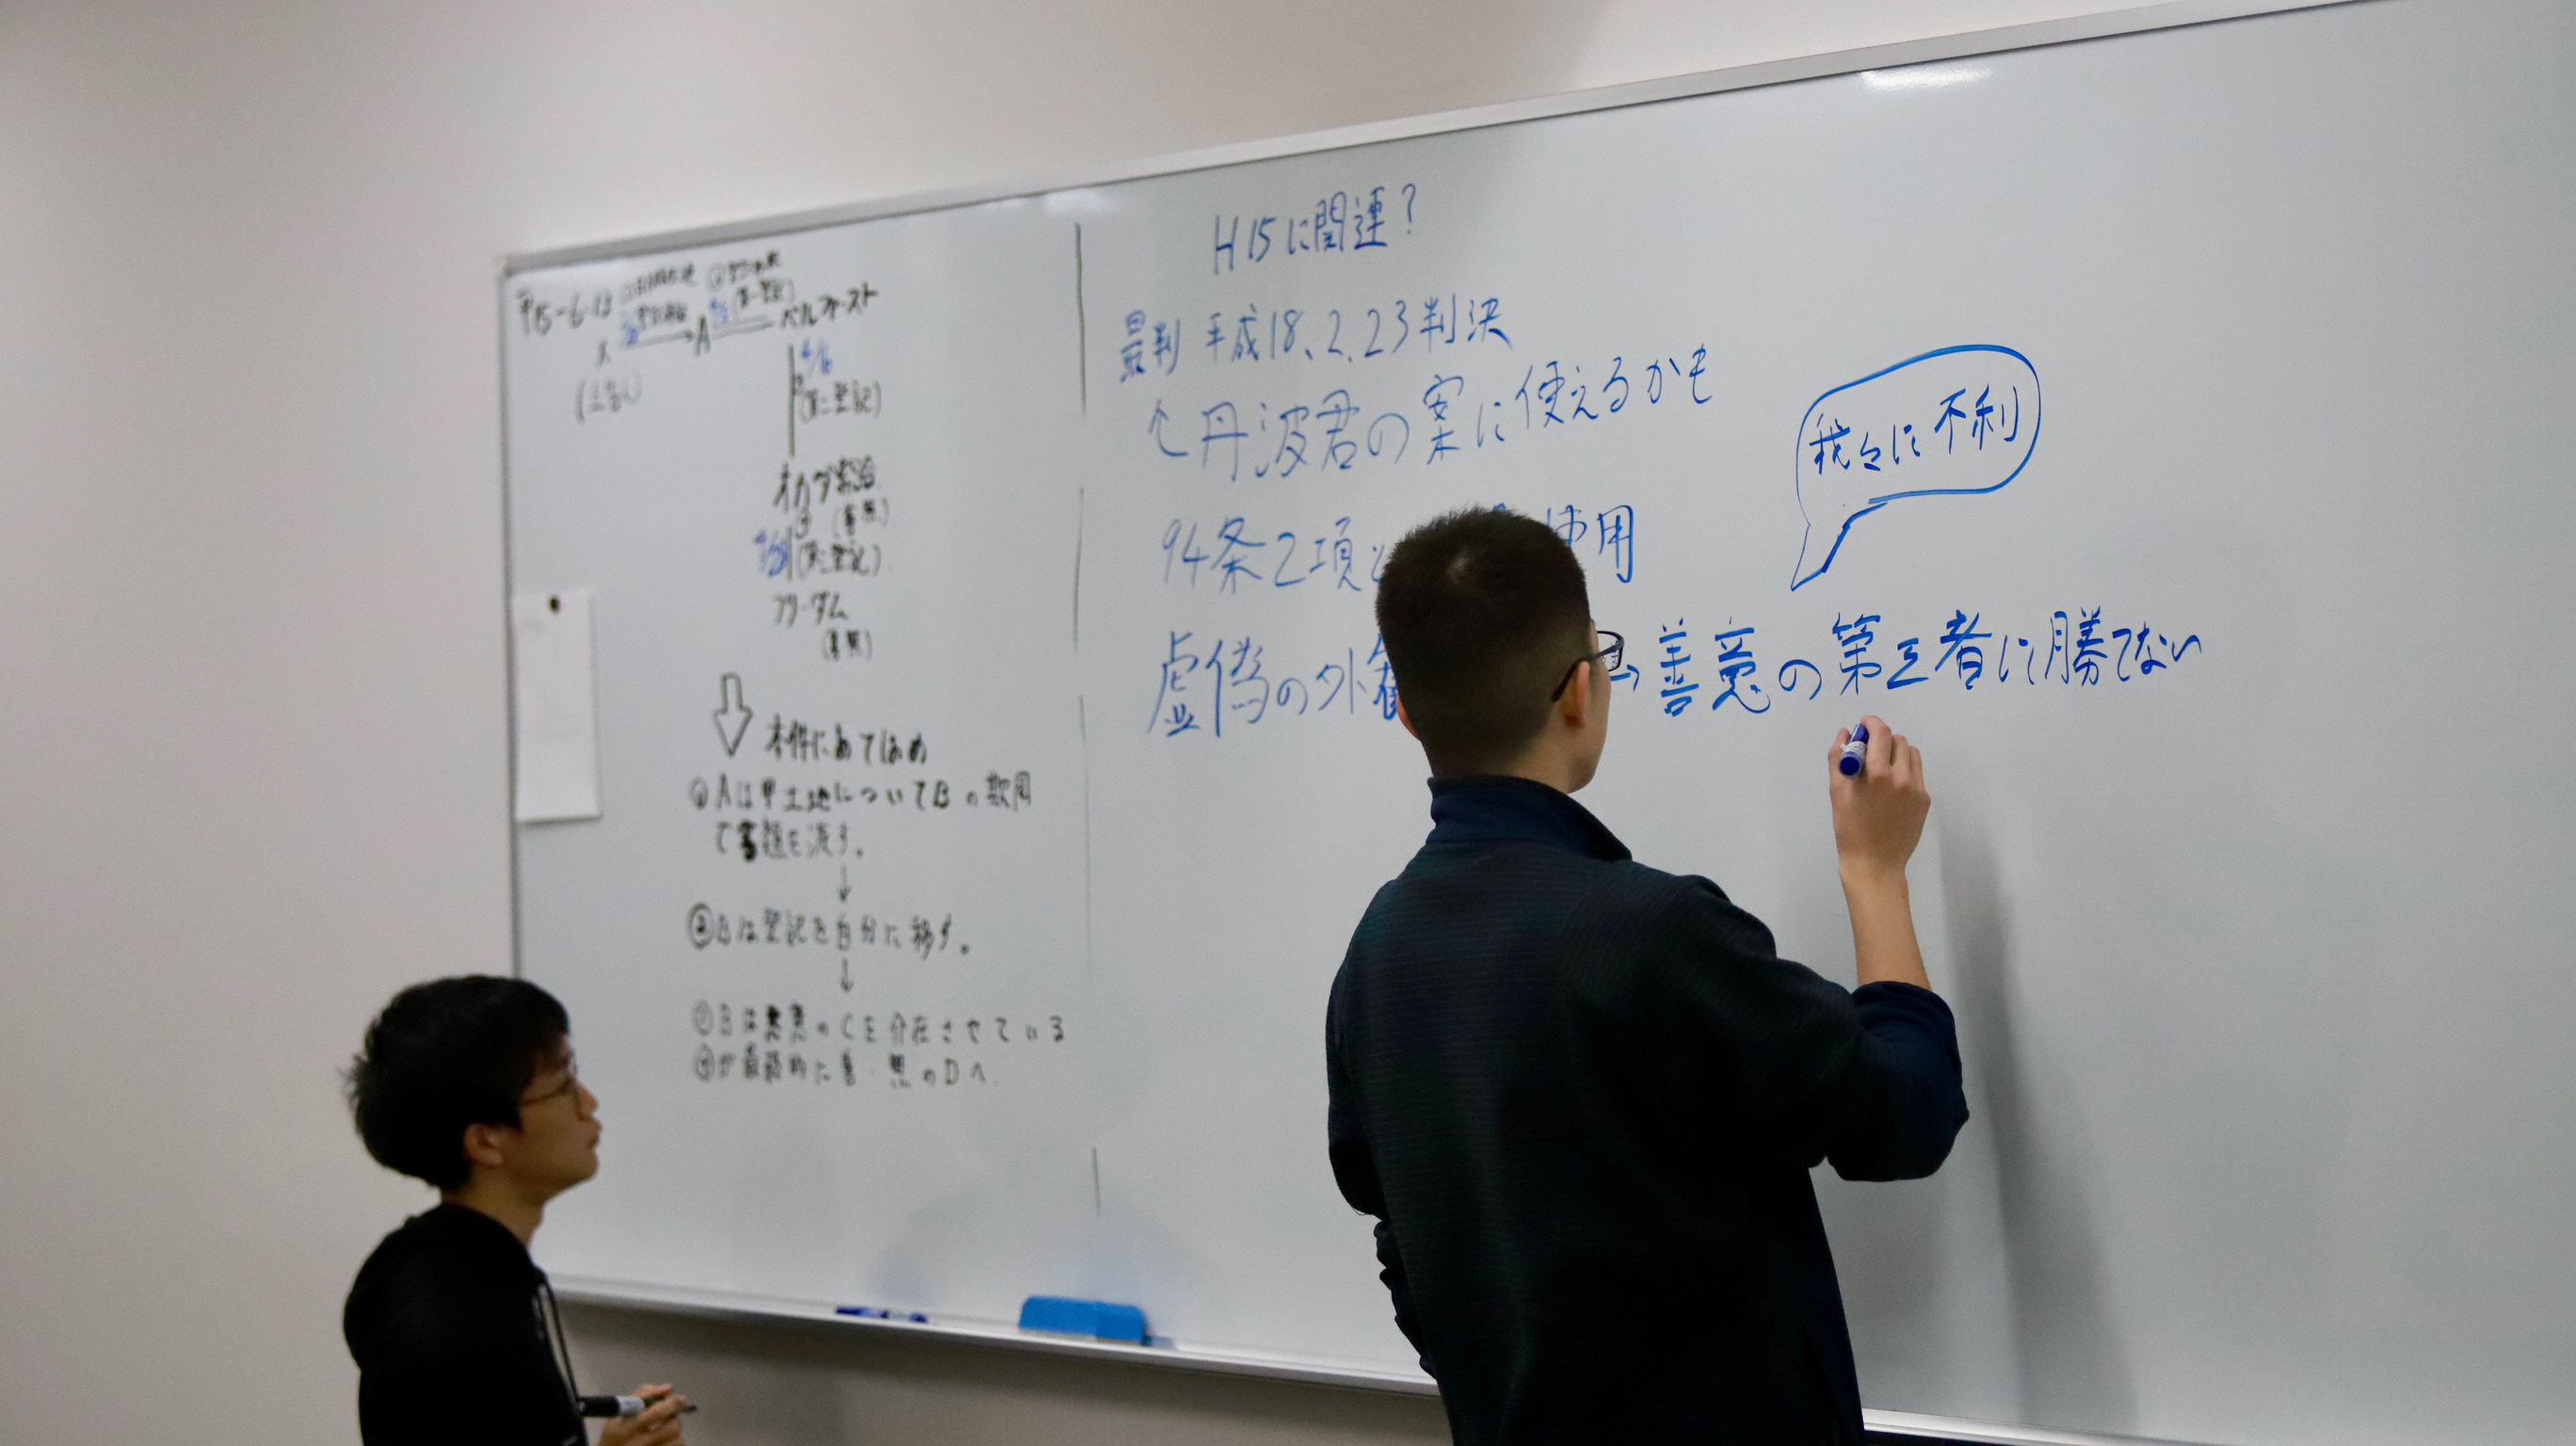 平15-6-13
X
A
ベルフォースト
4/6
(第二登記)
オカダ
(善無)
(第三登記)
フリーダム
(善無)
本件にあてはめ
①Aは甲土地についてBの欺罔
で書類を渡す。
↓
②Bは登記を自分に移す。
↓
③Bは悪意のCを介在させている
④が最終的に善・無のDへ.
H15に関連?
最判 平成18、2、23判決
丹波君の案に使えるかも
94条2項
使用
虚偽の外観
→善意の第三者に勝てない
我々に不利